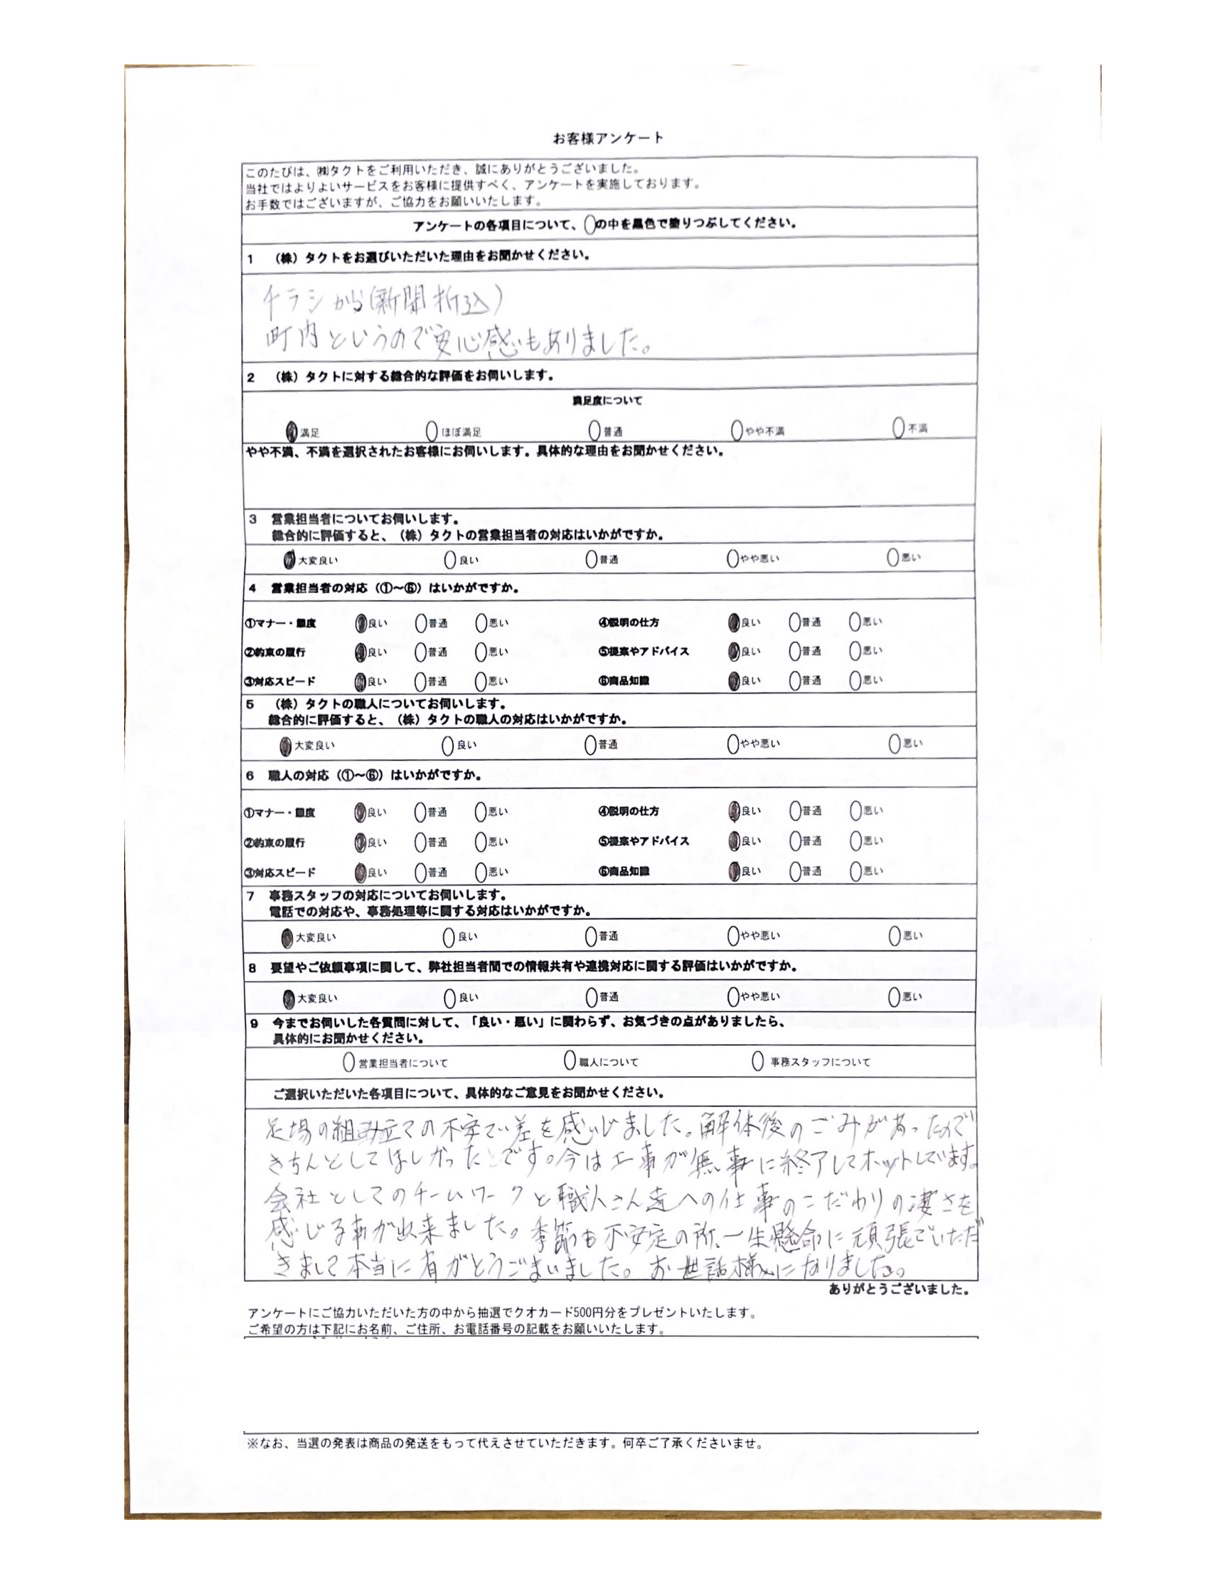 お客様アンケート
このたびは、㈱タクトをご利用いただき、誠にありがとうございました。
当社ではよりよいサービスをお客様に提供すべく、アンケートを実施しております。
お手数ではございますが、ご協力をお願いいたします。
アンケートの各項目について、〇の中を黒色で塗りつぶしてください。
1 （株）タクトをお選びいただいた理由をお聞かせください。
チラシから(新聞折込)
町内というので安心感もありました。
2 （株）タクトに対する総合的な評価をお伺いします。
満足度について
満足 ほぼ満足 普通 やや不満 不満
やや不満、不満を選択されたお客様にお伺いします。具体的な理由をお聞かせください。
3 営業担当者についてお伺いします。
総合的に評価すると、（株）タクトの営業担当者の対応はいかがですか。
大変良い 良い 普通 やや悪い 悪い
4 営業担当者の対応（①～⑥）はいかがですか。
①マナー・態度 良い 普通 悪い ④説明の仕方 良い 普通 悪い
②約束の履行 良い 普通 悪い ⑤提案やアドバイス 良い 普通 悪い
③対応スピード 良い 普通 悪い ⑥商品知識 良い 普通 悪い
5 （株）タクトの職人についてお伺いします。
総合的に評価すると、（株）タクトの職人の対応はいかがですか。
大変良い 良い 普通 やや悪い 悪い
6 職人の対応（①～⑥）はいかがですか。
①マナー・態度 良い 普通 悪い ④説明の仕方 良い 普通 悪い
②約束の履行 良い 普通 悪い ⑤提案やアドバイス 良い 普通 悪い
③対応スピード 良い 普通 悪い ⑥商品知識 良い 普通 悪い
7 事務スタッフの対応についてお伺いします。
電話での対応や、事務処理等に関する対応はいかがですか。
大変良い 良い 普通 やや悪い 悪い
8 要望やご依頼事項に関して、弊社担当者間での情報共有や連携対応に関する評価はいかがですか。
大変良い 良い 普通 やや悪い 悪い
9 今までお伺いした各質問に対して、「良い・悪い」に関わらず、お気づきの点がありましたら、
具体的にお聞かせください。
営業担当者について 職人について 事務スタッフについて
ご選択いただいた各項目について、具体的なご意見をお聞かせください。
足場の組み立ての不安で差を感じました。解体後のごみがあったので
きちんとしてほしかったです。今は工事が無事に終了してホットしています。
会社としてのチームワークと職人さん達への仕事のこだわりの凄さを
感じる事が出来ました。季節も不安定の所、一生懸命に頑張っていただ
きまして本当に有がとうごまいました。お世話様になりました。
ありがとうございました。
アンケートにご協力いただいた方の中から抽選でクオカード500円分をプレゼントいたします。
ご希望の方は下記にお名前、ご住所、お電話番号の記載をお願いいたします。
※なお、当選の発表は商品の発送をもって代えさせていただきます。何卒ご了承くださいませ。